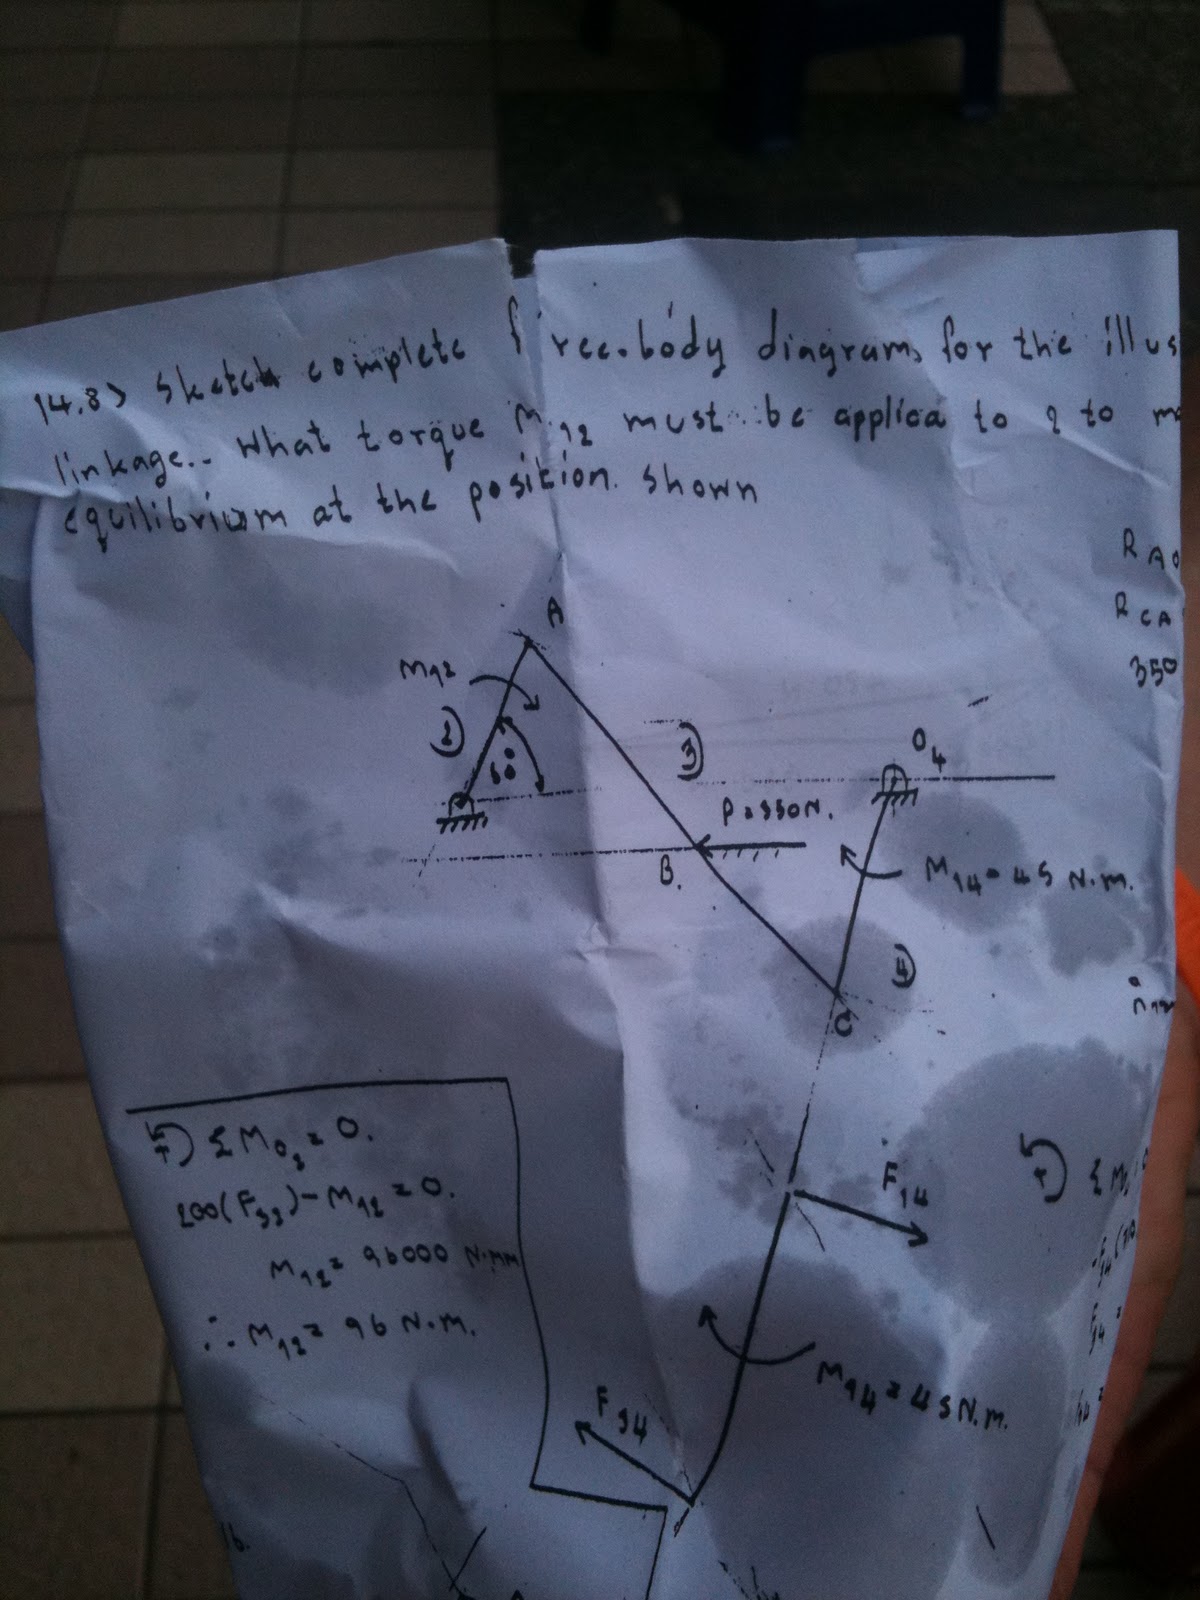 14.8) Sketch complete free.body diagrams for the illus
linkage.. What torque M12 must be applica to 2 to m
equilibrium at the position. shown
RAO
RCA
350
A
M12
2
60°
3
O4
P=550N.
B.
M14=45 N.m.
4
C
ΣMO2=0.
200(F32)-M12=0.
M12= 96000 N.mm
∴ M12= 96 N.m.
F14
M14=45N.m.
F34
F34